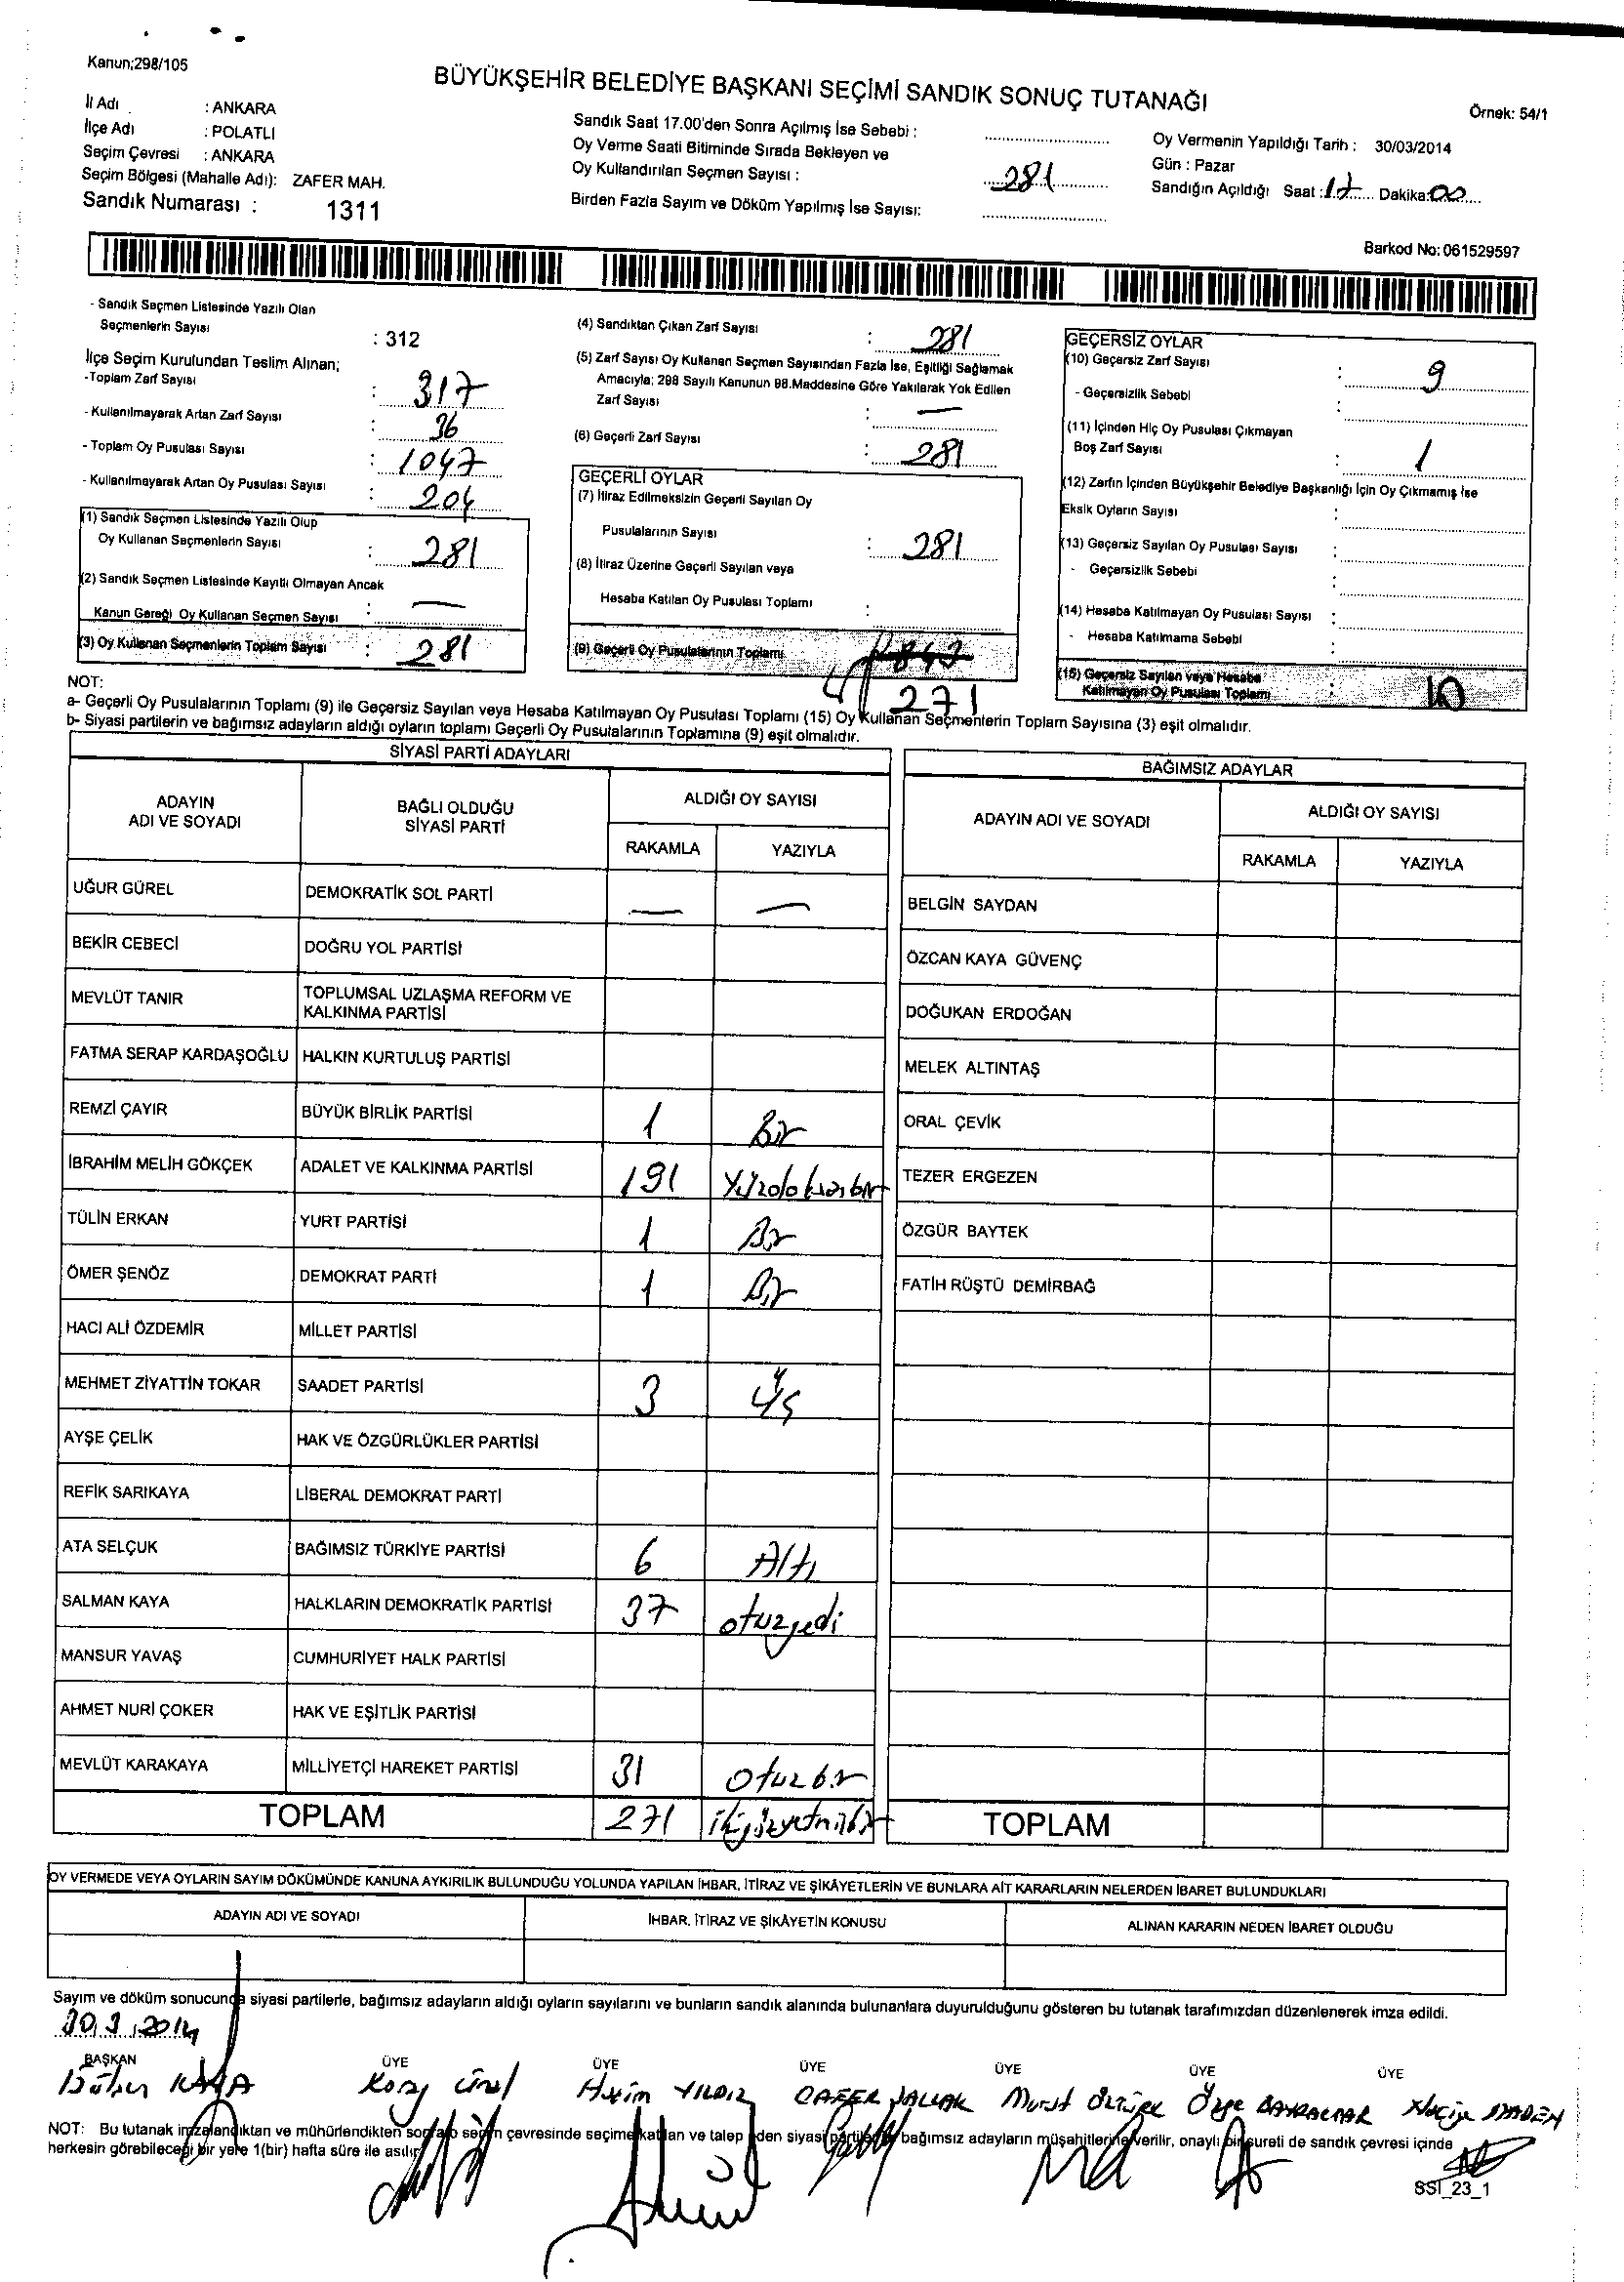 Kanun;298/105
BÜYÜKŞEHİR BELEDİYE BAŞKANI SEÇİMİ SANDIK SONUÇ TUTANAĞI
Örnek: 54/1
İl Adı : ANKARA
İlçe Adı : POLATLI
Seçim Çevresi : ANKARA
Seçim Bölgesi (Mahalle Adı): ZAFER MAH.
Sandık Numarası : 1311
Sandık Saat 17.00'den Sonra Açılmış İse Sebebi :
Oy Verme Saati Bitiminde Sırada Bekleyen ve
Oy Kullandırılan Seçmen Sayısı : 281
Birden Fazla Sayım ve Döküm Yapılmış İse Sayısı:
Oy Vermenin Yapıldığı Tarih : 30/03/2014
Gün : Pazar
Sandığın Açıldığı Saat : 17 Dakika: 00
Barkod No: 061529597
- Sandık Seçmen Listesinde Yazılı Olan
Seçmenlerin Sayısı : 312
İlçe Seçim Kurulundan Teslim Alınan;
-Toplam Zarf Sayısı : 317
- Kullanılmayarak Artan Zarf Sayısı : 36
- Toplam Oy Pusulası Sayısı : 1047
- Kullanılmayarak Artan Oy Pusulası Sayısı : 204
(1) Sandık Seçmen Listesinde Yazılı Olup
Oy Kullanan Seçmenlerin Sayısı : 281
(2) Sandık Seçmen Listesinde Kayıtlı Olmayan Ancak
Kanun Gereği Oy Kullanan Seçmen Sayısı : —
(3) Oy Kullanan Seçmenlerin Toplam Sayısı : 281
(4) Sandıktan Çıkan Zarf Sayısı : 281
(5) Zarf Sayısı Oy Kullanan Seçmen Sayısından Fazla İse, Eşitliği Sağlamak
Amacıyla; 298 Sayılı Kanunun 98.Maddesine Göre Yakılarak Yok Edilen
Zarf Sayısı : —
(6) Geçerli Zarf Sayısı : 281
GEÇERLİ OYLAR
(7) İtiraz Edilmeksizin Geçerli Sayılan Oy
Pusulalarının Sayısı : 281
(8) İtiraz Üzerine Geçerli Sayılan veya
Hesaba Katılan Oy Pusulası Toplamı :
(9) Geçerli Oy Pusulalarının Toplamı 843
271
GEÇERSİZ OYLAR
(10) Geçersiz Zarf Sayısı : 9
- Geçersizlik Sebebi :
(11) İçinden Hiç Oy Pusulası Çıkmayan
Boş Zarf Sayısı : 1
(12) Zarfın İçinden Büyükşehir Belediye Başkanlığı İçin Oy Çıkmamış İse
Eksik Oyların Sayısı :
(13) Geçersiz Sayılan Oy Pusulası Sayısı :
- Geçersizlik Sebebi :
(14) Hesaba Katılmayan Oy Pusulası Sayısı :
- Hesaba Katılmama Sebebi :
(15) Geçersiz Sayılan veya Hesaba
Katılmayan Oy Pusulası Toplamı : 10
NOT:
a- Geçerli Oy Pusulalarının Toplamı (9) ile Geçersiz Sayılan veya Hesaba Katılmayan Oy Pusulası Toplamı (15) Oy Kullanan Seçmenlerin Toplam Sayısına (3) eşit olmalıdır.
b- Siyasi partilerin ve bağımsız adayların aldığı oyların toplamı Geçerli Oy Pusulalarının Toplamına (9) eşit olmalıdır.
SİYASİ PARTİ ADAYLARI
ADAYIN ADI VE SOYADI BAĞLI OLDUĞU SİYASİ PARTİ ALDIĞI OY SAYISI
RAKAMLA YAZIYLA
UĞUR GÜREL DEMOKRATİK SOL PARTİ — —
BEKİR CEBECİ DOĞRU YOL PARTİSİ
MEVLÜT TANIR TOPLUMSAL UZLAŞMA REFORM VE KALKINMA PARTİSİ
FATMA SERAP KARDAŞOĞLU HALKIN KURTULUŞ PARTİSİ
REMZİ ÇAYIR BÜYÜK BİRLİK PARTİSİ 1 Bir
İBRAHİM MELİH GÖKÇEK ADALET VE KALKINMA PARTİSİ 191 Yüzdoksanbir
TÜLİN ERKAN YURT PARTİSİ 1 Bir
ÖMER ŞENÖZ DEMOKRAT PARTİ 1 Bir
HACI ALİ ÖZDEMİR MİLLET PARTİSİ
MEHMET ZİYATTİN TOKAR SAADET PARTİSİ 3 Üç
AYŞE ÇELİK HAK VE ÖZGÜRLÜKLER PARTİSİ
REFİK SARIKAYA LİBERAL DEMOKRAT PARTİ
ATA SELÇUK BAĞIMSIZ TÜRKİYE PARTİSİ 6 Altı
SALMAN KAYA HALKLARIN DEMOKRATİK PARTİSİ 37 otuzyedi
MANSUR YAVAŞ CUMHURİYET HALK PARTİSİ
AHMET NURİ ÇOKER HAK VE EŞİTLİK PARTİSİ
MEVLÜT KARAKAYA MİLLİYETÇİ HAREKET PARTİSİ 31 otuzbir
TOPLAM 271 ikiyüzyetmişbir
BAĞIMSIZ ADAYLAR
ADAYIN ADI VE SOYADI ALDIĞI OY SAYISI
RAKAMLA YAZIYLA
BELGİN SAYDAN
ÖZCAN KAYA GÜVENÇ
DOĞUKAN ERDOĞAN
MELEK ALTINTAŞ
ORAL ÇEVİK
TEZER ERGEZEN
ÖZGÜR BAYTEK
FATİH RÜŞTÜ DEMİRBAĞ
TOPLAM
OY VERMEDE VEYA OYLARIN SAYIM DÖKÜMÜNDE KANUNA AYKIRILIK BULUNDUĞU YOLUNDA YAPILAN İHBAR, İTİRAZ VE ŞİKÂYETLERİN VE BUNLARA AİT KARARLARIN NELERDEN İBARET BULUNDUKLARI
ADAYIN ADI VE SOYADI İHBAR, İTİRAZ VE ŞİKÂYETİN KONUSU ALINAN KARARIN NEDEN İBARET OLDUĞU
Sayım ve döküm sonucunda siyasi partilerle, bağımsız adayların aldığı oyların sayılarını ve bunların sandık alanında bulunanlara duyurulduğunu gösteren bu tutanak tarafımızdan düzenlenerek imza edildi.
30.3.2014
BAŞKAN ÜYE ÜYE ÜYE ÜYE ÜYE ÜYE
KAYA Koray Ünal YILDIZ ZAFER Murat Öztürk Özge BAYRAKTAR
NOT: Bu tutanak imzalandıktan ve mühürlendikten sonra o seçim çevresinde seçime katılan ve talep eden siyasi partilerle bağımsız adayların müşahitlerine verilir, onaylı bir sureti de sandık çevresi içinde
herkesin görebileceği bir yere 1(bir) hafta süre ile asılır.
SSİ_23_1